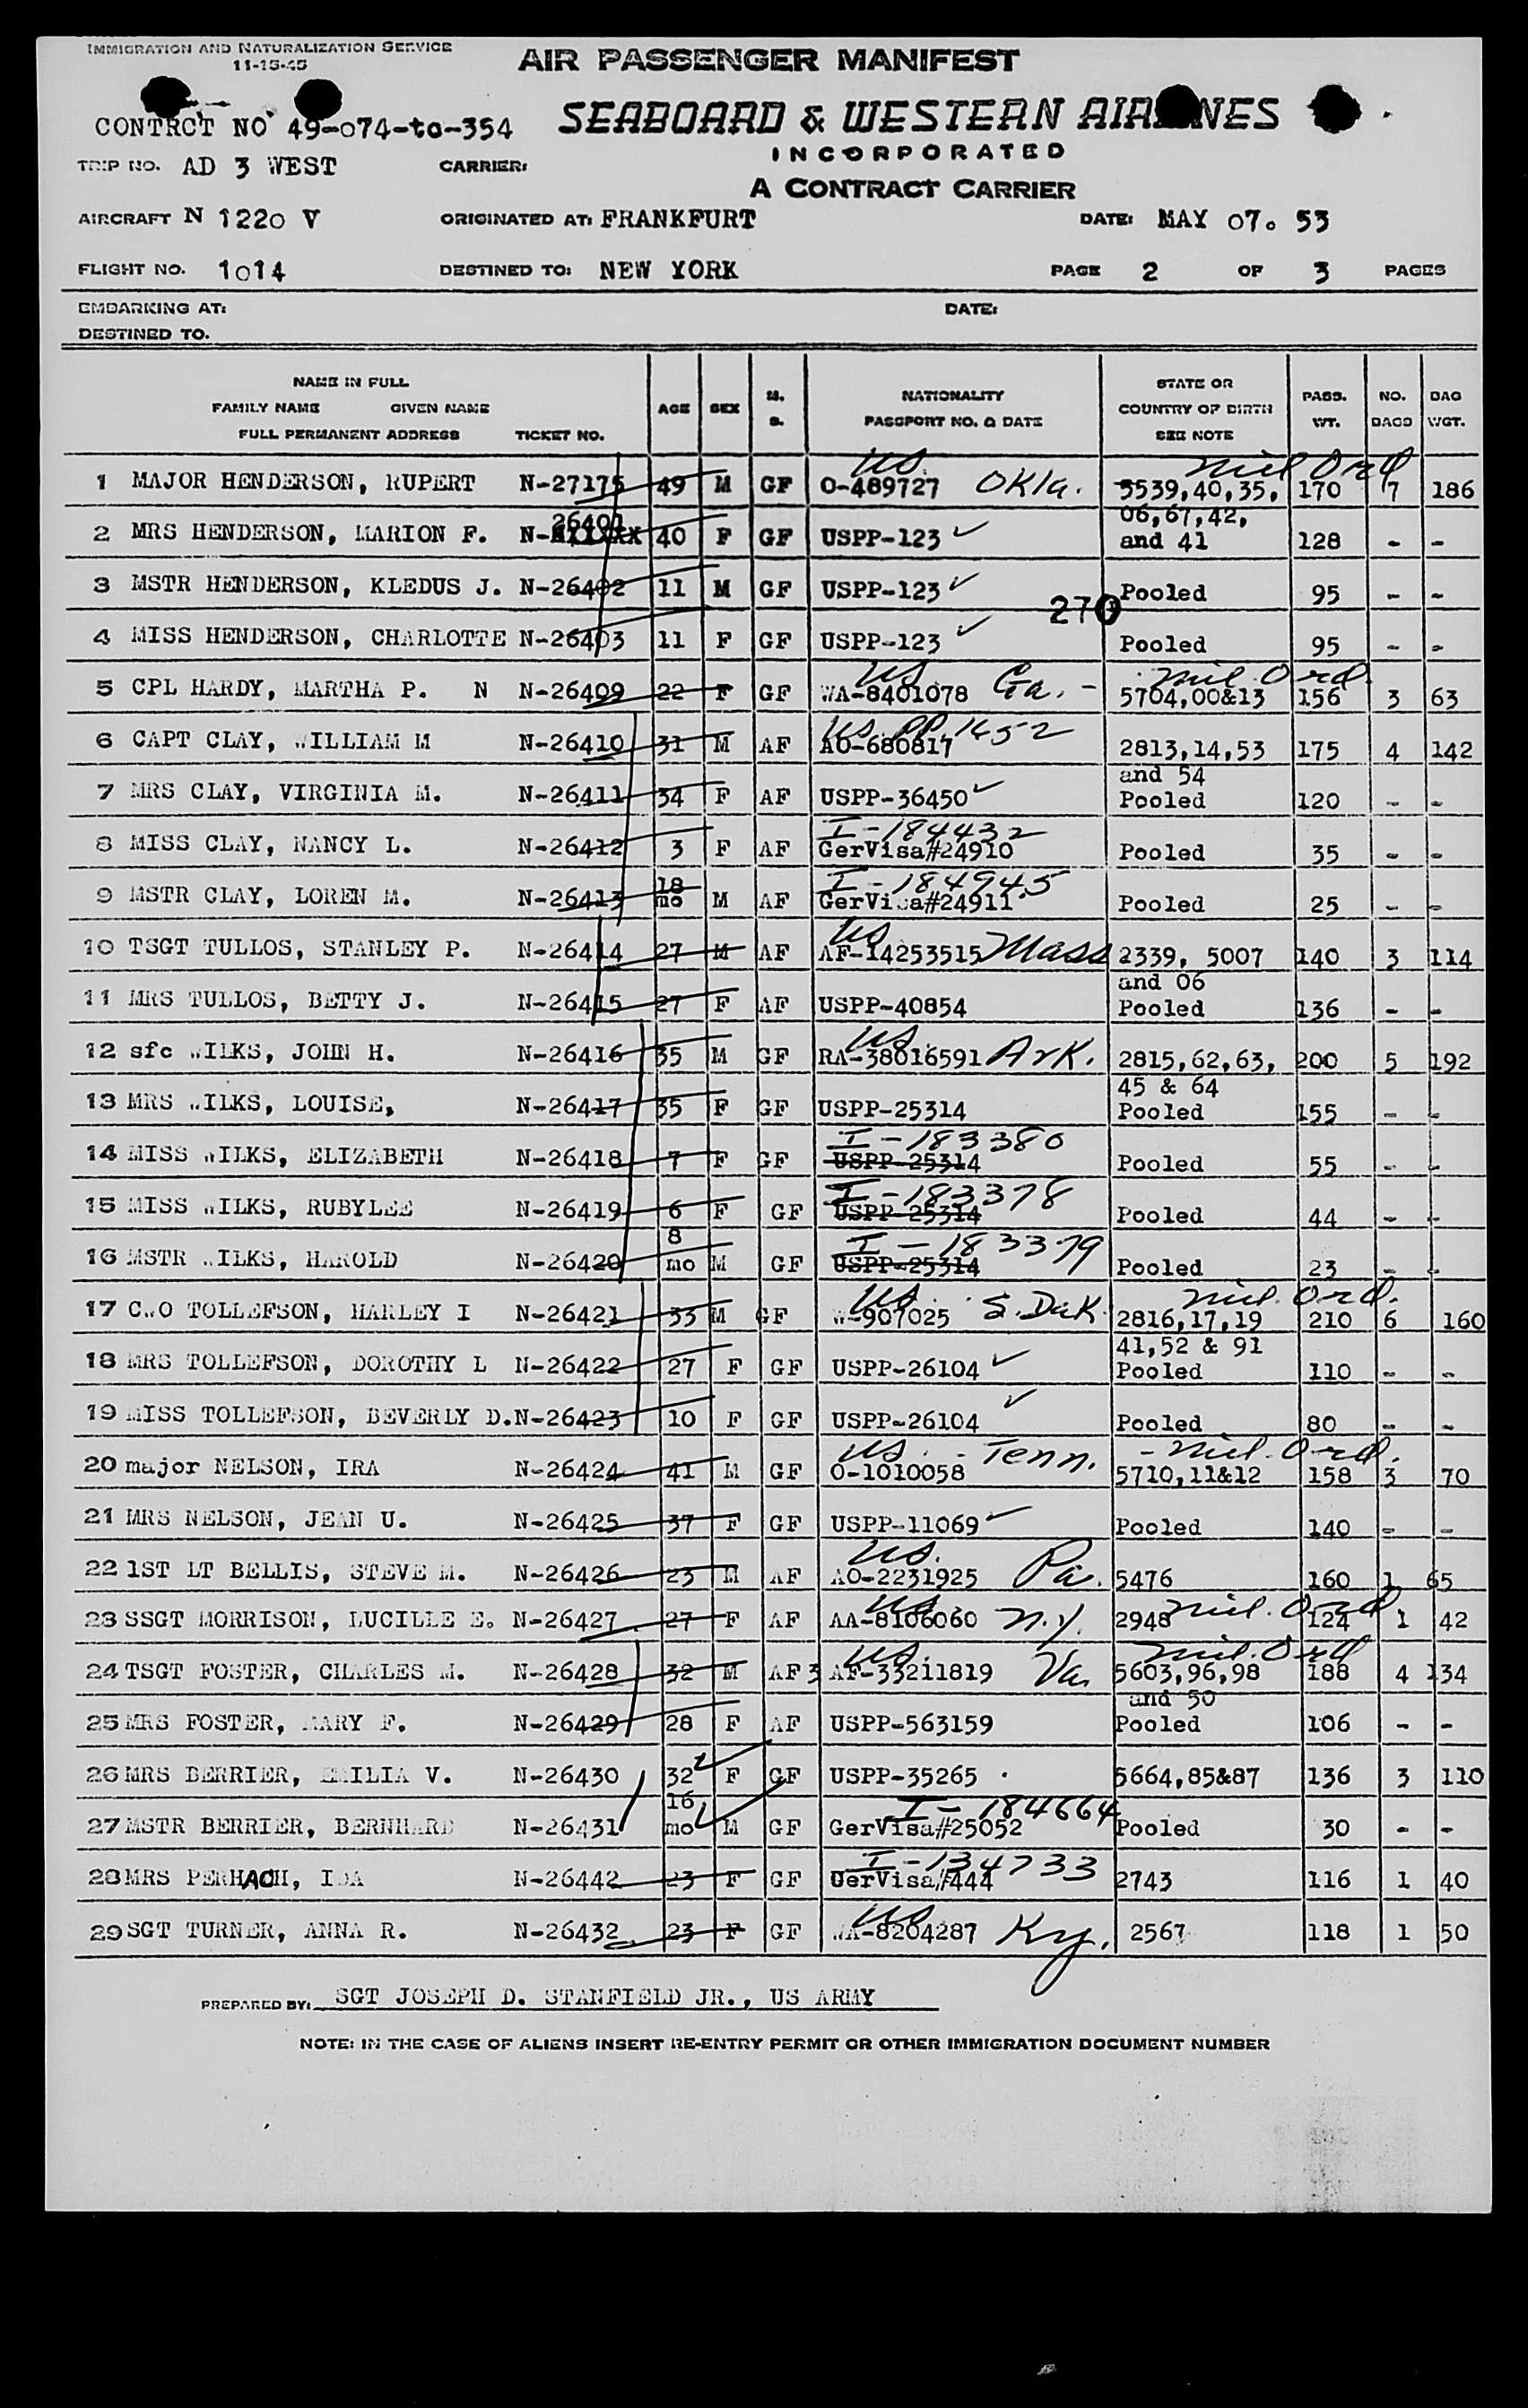 IMMIGRATION AND NATURALIZATION SERVICE
11-15-45
AIR PASSENGER MANIFEST
CONTRCT NO 49-074-to-354
SEABOARD & WESTERN AIRLINES
INCORPORATED
TRIP NO. AD 3 WEST CARRIER:
A CONTRACT CARRIER
AIRCRAFT N 1220 V ORIGINATED AT: FRANKFURT DATE: MAY 07. 53
FLIGHT NO. 1014 DESTINED TO: NEW YORK PAGE 2 OF 3 PAGES
EMBARKING AT: DATE:
DESTINED TO.
NAME IN FULL
FAMILY NAME GIVEN NAME
FULL PERMANENT ADDRESS TICKET NO.
AGE SEX M. S.
NATIONALITY
PASSPORT NO. & DATE
STATE OR
COUNTRY OF BIRTH
SEE NOTE
PASS. WT.
NO. BAGS
BAG WGT.
US. Mil Ord
1 MAJOR HENDERSON, RUPERT N-27175 49 M GF O-489727 Okla. 5539,40,35, 170 7 186
26401 06,67,42,
2 MRS HENDERSON, MARION F. N- 40 F GF USPP-123 ✓ and 41 128 - -
3 MSTR HENDERSON, KLEDUS J. N-26402 11 M GF USPP-123 ✓ Pooled 95 - -
270
4 MISS HENDERSON, CHARLOTTE N-26403 11 F GF USPP-123 ✓ Pooled 95 - -
US Mil Ord.
5 CPL HARDY, MARTHA P. N N-26409 22 F GF WA-8401078 Ga. - 5704,00&13 156 3 63
US. PP. 1652
6 CAPT CLAY, WILLIAM M N-26410 31 M AF AO-680817 2813,14,53 175 4 142
and 54
7 MRS CLAY, VIRGINIA M. N-26411 34 F AF USPP-36450 ✓ Pooled 120 - -
I-184432
8 MISS CLAY, NANCY L. N-26412 3 F AF GerVisa#24910 Pooled 35 - -
18 I-184945
9 MSTR CLAY, LOREN M. N-26413 mo M AF GerVisa#24911 Pooled 25 - -
US
10 TSGT TULLOS, STANLEY P. N-26414 27 M AF AF-14253515 Mass 2339, 5007 140 3 114
and 06
11 MRS TULLOS, BETTY J. N-26415 27 F AF USPP-40854 Pooled 136 - -
US.
12 sfc WILKS, JOHN H. N-26416 35 M GF RA-38016591 Ark. 2815,62,63, 200 5 192
45 & 64
13 MRS WILKS, LOUISE, N-26417 35 F GF USPP-25314 Pooled 155 - -
I-183380
14 MISS WILKS, ELIZABETH N-26418 7 F GF USPP-25314 Pooled 55 - -
I-183378
15 MISS WILKS, RUBYLEE N-26419 6 F GF USPP-25314 Pooled 44 - -
8 I-183379
16 MSTR WILKS, HAROLD N-26420 mo M GF USPP-25314 Pooled 23 - -
US. Mil. Ord.
17 CWO TOLLEFSON, HARLEY I N-26421 33 M GF W-907025 S. Dak. 2816,17,19 210 6 160
41,52 & 91
18 MRS TOLLEFSON, DOROTHY L N-26422 27 F GF USPP-26104 ✓ Pooled 110 - -
✓
19 MISS TOLLEFSON, BEVERLY D. N-26423 10 F GF USPP-26104 Pooled 80 - -
US. - Tenn. - Mil. Ord.
20 major NELSON, IRA N-26424 41 M GF O-1010058 5710,11&12 158 3 70
21 MRS NELSON, JEAN U. N-26425 37 F GF USPP-11069 ✓ Pooled 140 - -
US.
22 1ST LT BELLIS, STEVE M. N-26426 23 M AF AO-2231925 Pa. 5476 160 1 65
US. Mil. Ord
23 SSGT MORRISON, LUCILLE E. N-26427 27 F AF AA-8106060 N.Y. 2948 124 1 42
US. Mil. Ord
24 TSGT FOSTER, CHARLES M. N-26428 32 M AF 3 AF-33211819 Va. 5603,96,98 188 4 134
and 50
25 MRS FOSTER, MARY F. N-26429 28 F AF USPP-563159 Pooled 106 - -
26 MRS BERRIER, EMILIA V. N-26430 32 ✓ F GF USPP-35265 5664,85&87 136 3 110
16 I-184664
27 MSTR BERRIER, BERNHARD N-26431 mo ✓ M GF GerVisa#25052 Pooled 30 - -
I-134733
28 MRS PERHACH, IDA N-26442 23 F GF GerVisa#444 2743 116 1 40
US
29 SGT TURNER, ANNA R. N-26432 23 F GF WA-8204287 Ky. 2567 118 1 50
PREPARED BY: SGT JOSEPH D. STANFIELD JR., US ARMY
NOTE: IN THE CASE OF ALIENS INSERT RE-ENTRY PERMIT OR OTHER IMMIGRATION DOCUMENT NUMBER